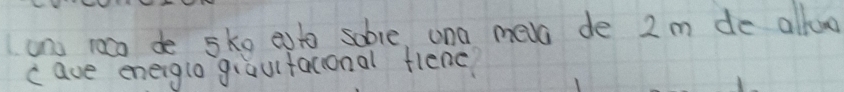 una roca de 5kg esta sobre una mesa de 2m de altura
¿ que energia gravitacional tiene?